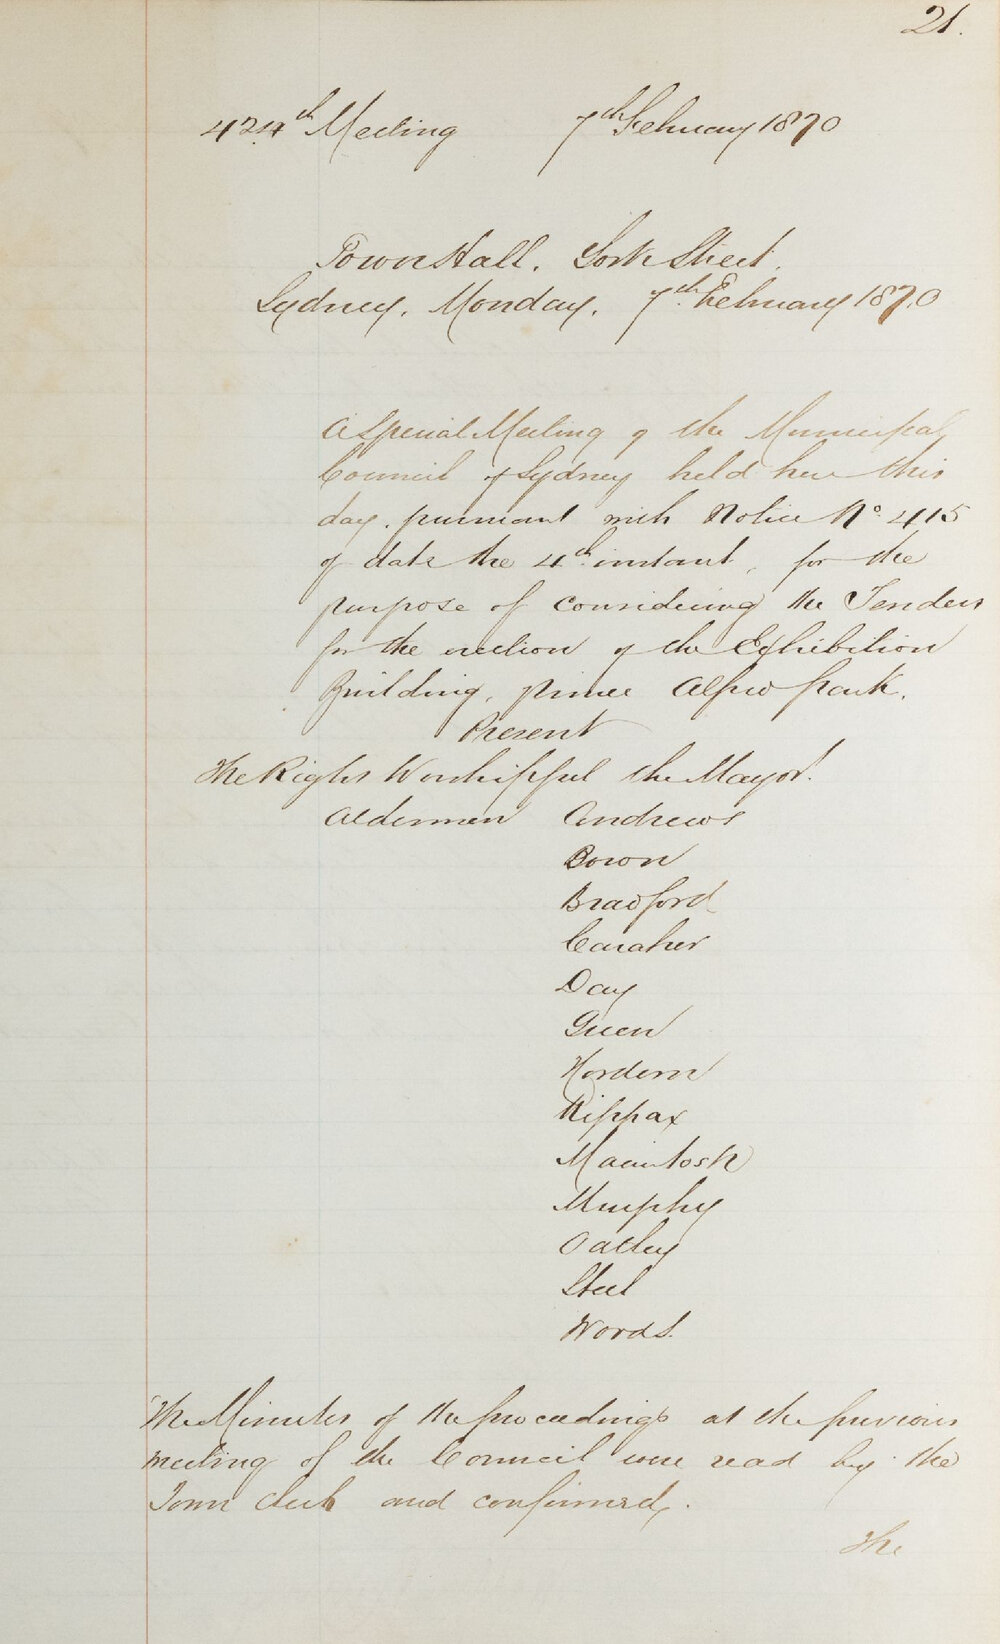 21.
424th Meeting 7th February 1870
Town Hall. York Street.
Sydney, Monday, 7th February 1870
A Special Meeting of the Municipal
Council of Sydney held here this
day. pursuant with Notice No. 415
of date the 4th instant, for the
purpose of considering the Tenders
for the erection of the Exhibition
Building, Prince Alfred Park.
Present
The Right Worshipful the Mayor.
Aldermen Andrews
Bown
Bradford
Caraher
Day
Green
Hordern
Kippax
Macintosh
Murphy
Oatley
Steel
Woods.
The Minutes of the proceedings at the previous
meeting of the Council were read by the
Town Clerk and confirmed.
The